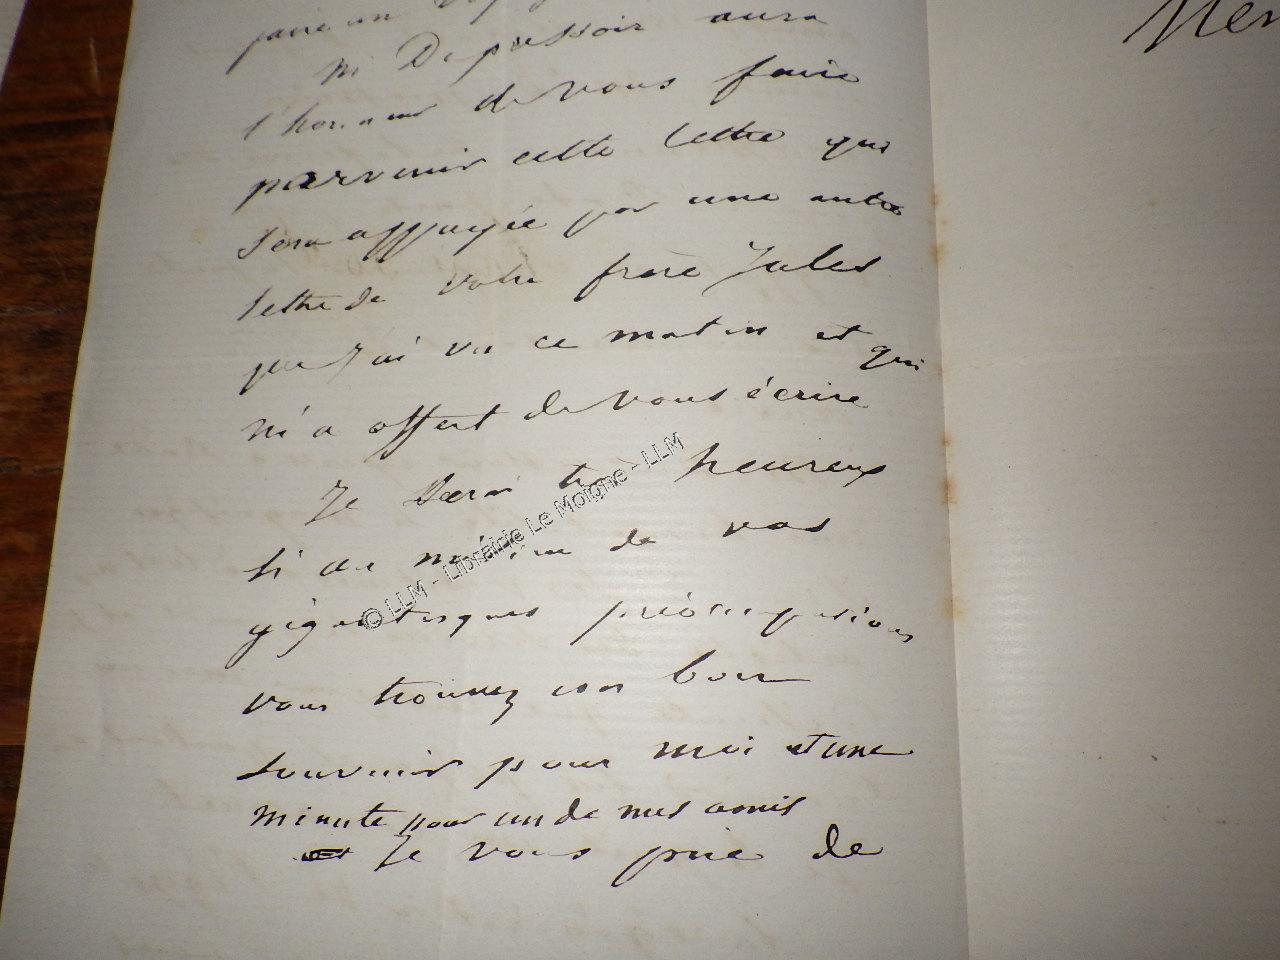 faire un
Mr Depressoir aura
l'honneur de vous faire
parvenir cette lettre qui
sera appuyée par une autre
lettre de votre frère Jules
que j'ai vu ce matin et qui
m'a offert de vous écrire
Je serai très heureux
si au milieu de vos
gigantesques préoccupations
vous trouvez un bon
souvenir pour moi et une
minute pour un de mes amis
Je vous prie de
© LLM - Librairie Le Moigne - LLM